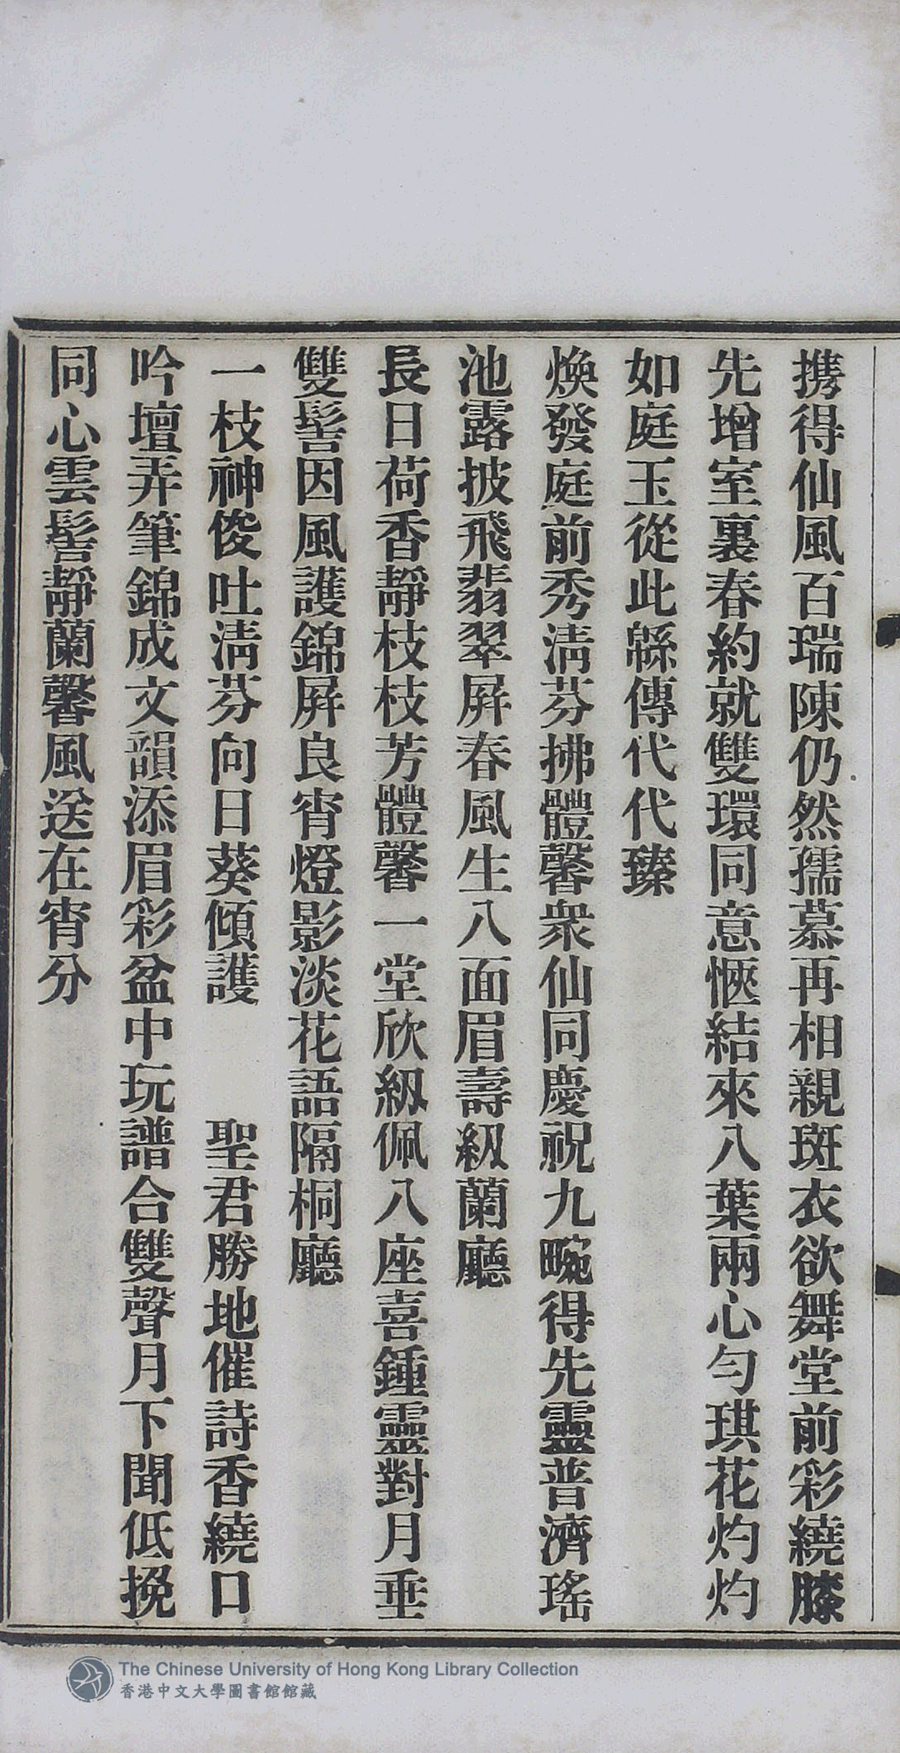 携得仙風百瑞陳仍然孺慕再相親斑衣欲舞堂前彩繞膝
先增室裏春約就雙環同意愜結來八葉兩心勻琪花灼灼
如庭玉從此緜傳代代臻
煥發庭前秀淸芬拂體馨衆仙同慶祝九畹得先靈普濟瑤
池露披飛翡翠屛春風生八面眉壽級蘭廳
長日荷香靜枝枝芳體馨一堂欣級佩八座喜鍾靈對月垂
雙髻因風護錦屛良宵燈影淡花語隔桐廳
一枝神俊吐淸芬向日葵傾護　聖君勝地催詩香繞口
吟壇弄筆錦成文韻添眉彩盆中玩譜合雙聲月下聞低挽
同心雲髻靜蘭馨風送在宵分
The Chinese University of Hong Kong Library Collection
香港中文大學圖書館館藏